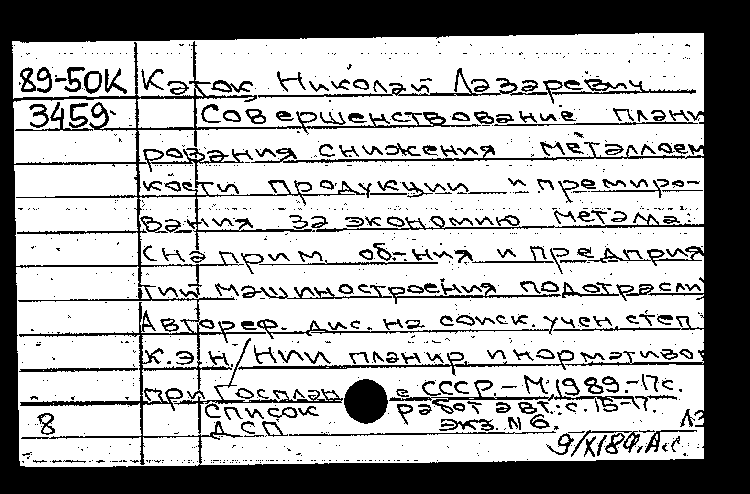 89-50К Каток Николай Лазаревич
3459 Совершенствование плани
рования снижения металлоем
кости продукции и премиро-
вания за экономию метала:
(на прим. об-ния и предприя
тий машиностроения подотрасли)
Автореф. дис. на соиск. учен. степ
к.э.н/НИИ планир. и нормативов
при Госплане СССР.-М,1989.-17с.
список работ авт.: с. 15-17.
8 ДСП экз. N 6. ЛЗ
9/XI89. А.с.